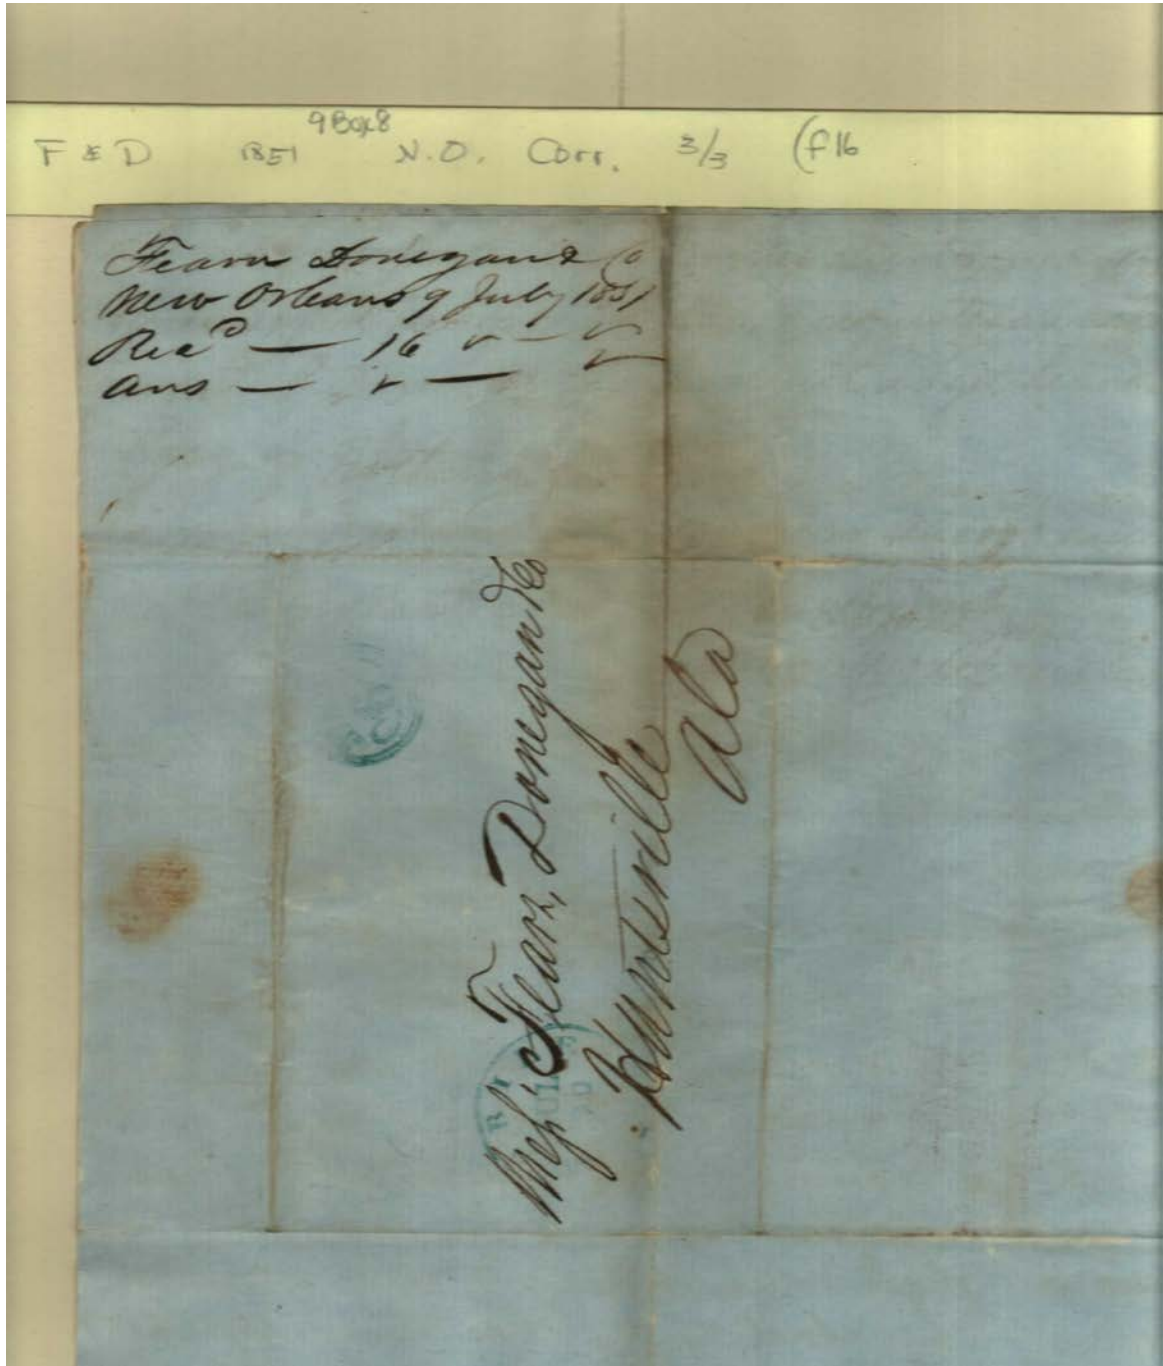 9Box8
F & D 1851 N.O. Corr. 3/3 (f16
Fearn Donegan & Co
New Orleans 9 July 1851
Recd — 16 " — "
Ans — " — "
Messrs Fearn, Donegan & Co
Huntsville
Ala